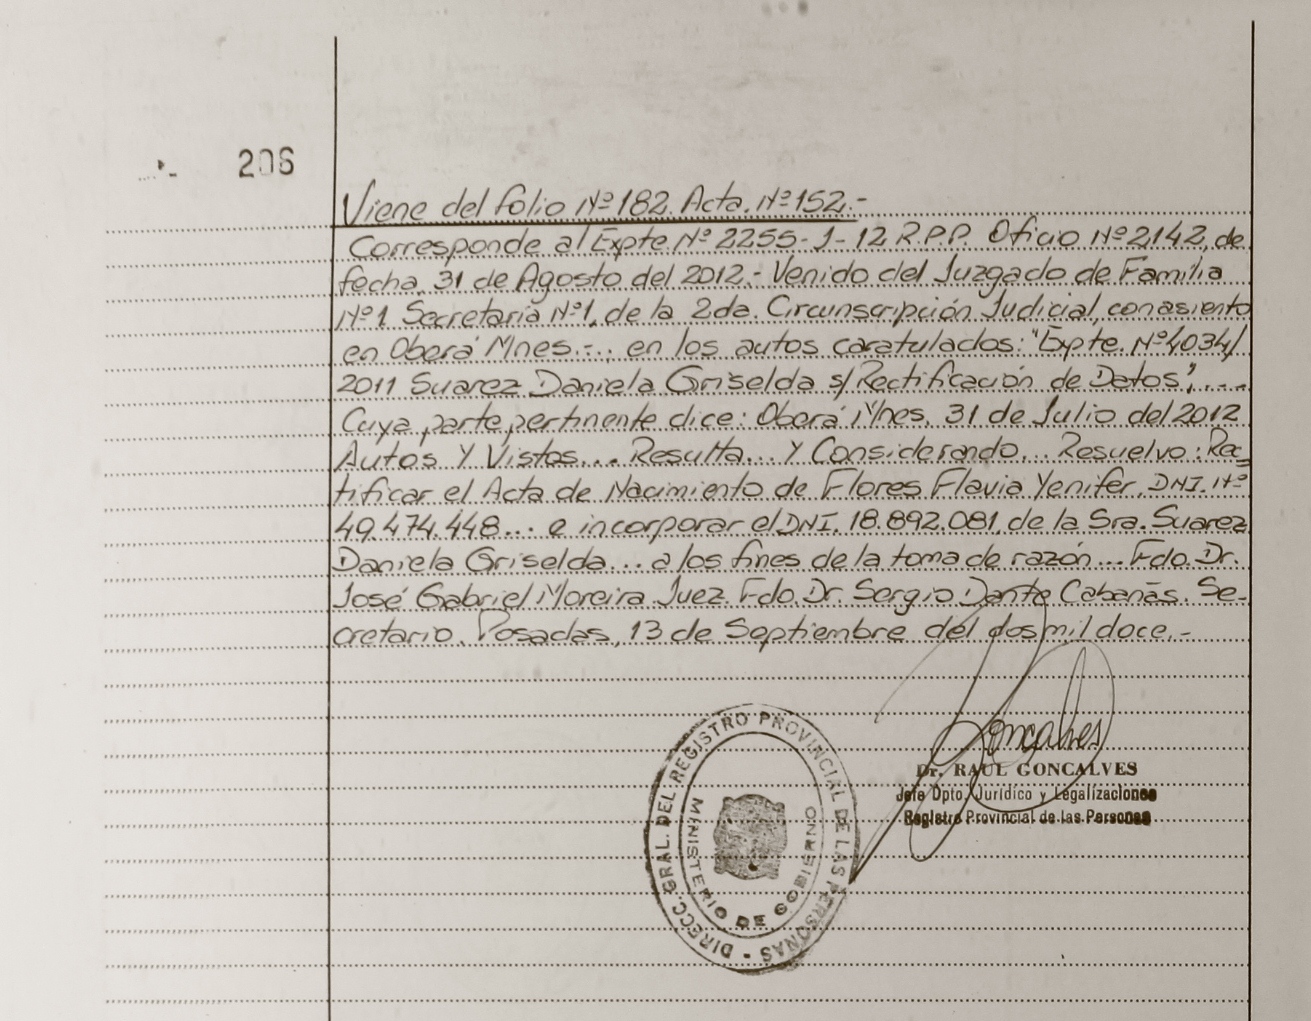 206
Viene del folio Nº 182. Acta. Nº 152.-
Corresponde al Expte Nº 2255-1-12 R.P.P. Oficio Nº 2142, de
fecha, 31 de Agosto del 2012.- Venido del Juzgado de Familia
Nº1 Secretaría Nº1, de la 2da. Circunscripción Judicial, con asiento
en Oberá Mnes.-.. en los autos caratulados: "Expte. Nº 4034/
2011 Suarez Daniela Griselda s/Rectificación de Datos",....
Cuya parte pertinente dice: Oberá Mnes, 31 de Julio del 2012
Autos Y Vistos... Resulta... Y Considerando... Resuelvo: Rec-
tificar el Acta de Nacimiento de Flores Flavia Yenifer, DNI. Nº
49.474.448... e incorporar el DNI. 18.892.081, de la Sra. Suarez
Daniela Griselda... a los fines de la toma de razón... Fdo. Dr.
José Gabriel Moreira Juez. Fdo. Dr. Sergio Dante Cabañas. Se-
cretario. Posadas, 13 de Septiembre del dos mil doce.-
Goncalves
Dr. RAUL GONCALVES
Jefe Dpto. Jurídico y Legalizaciones
Registro Provincial de las Personas
DIRECC. GRAL. DEL REGISTRO PROVINCIAL DE LAS PERSONAS -
MINISTERIO DE GOBIERNO